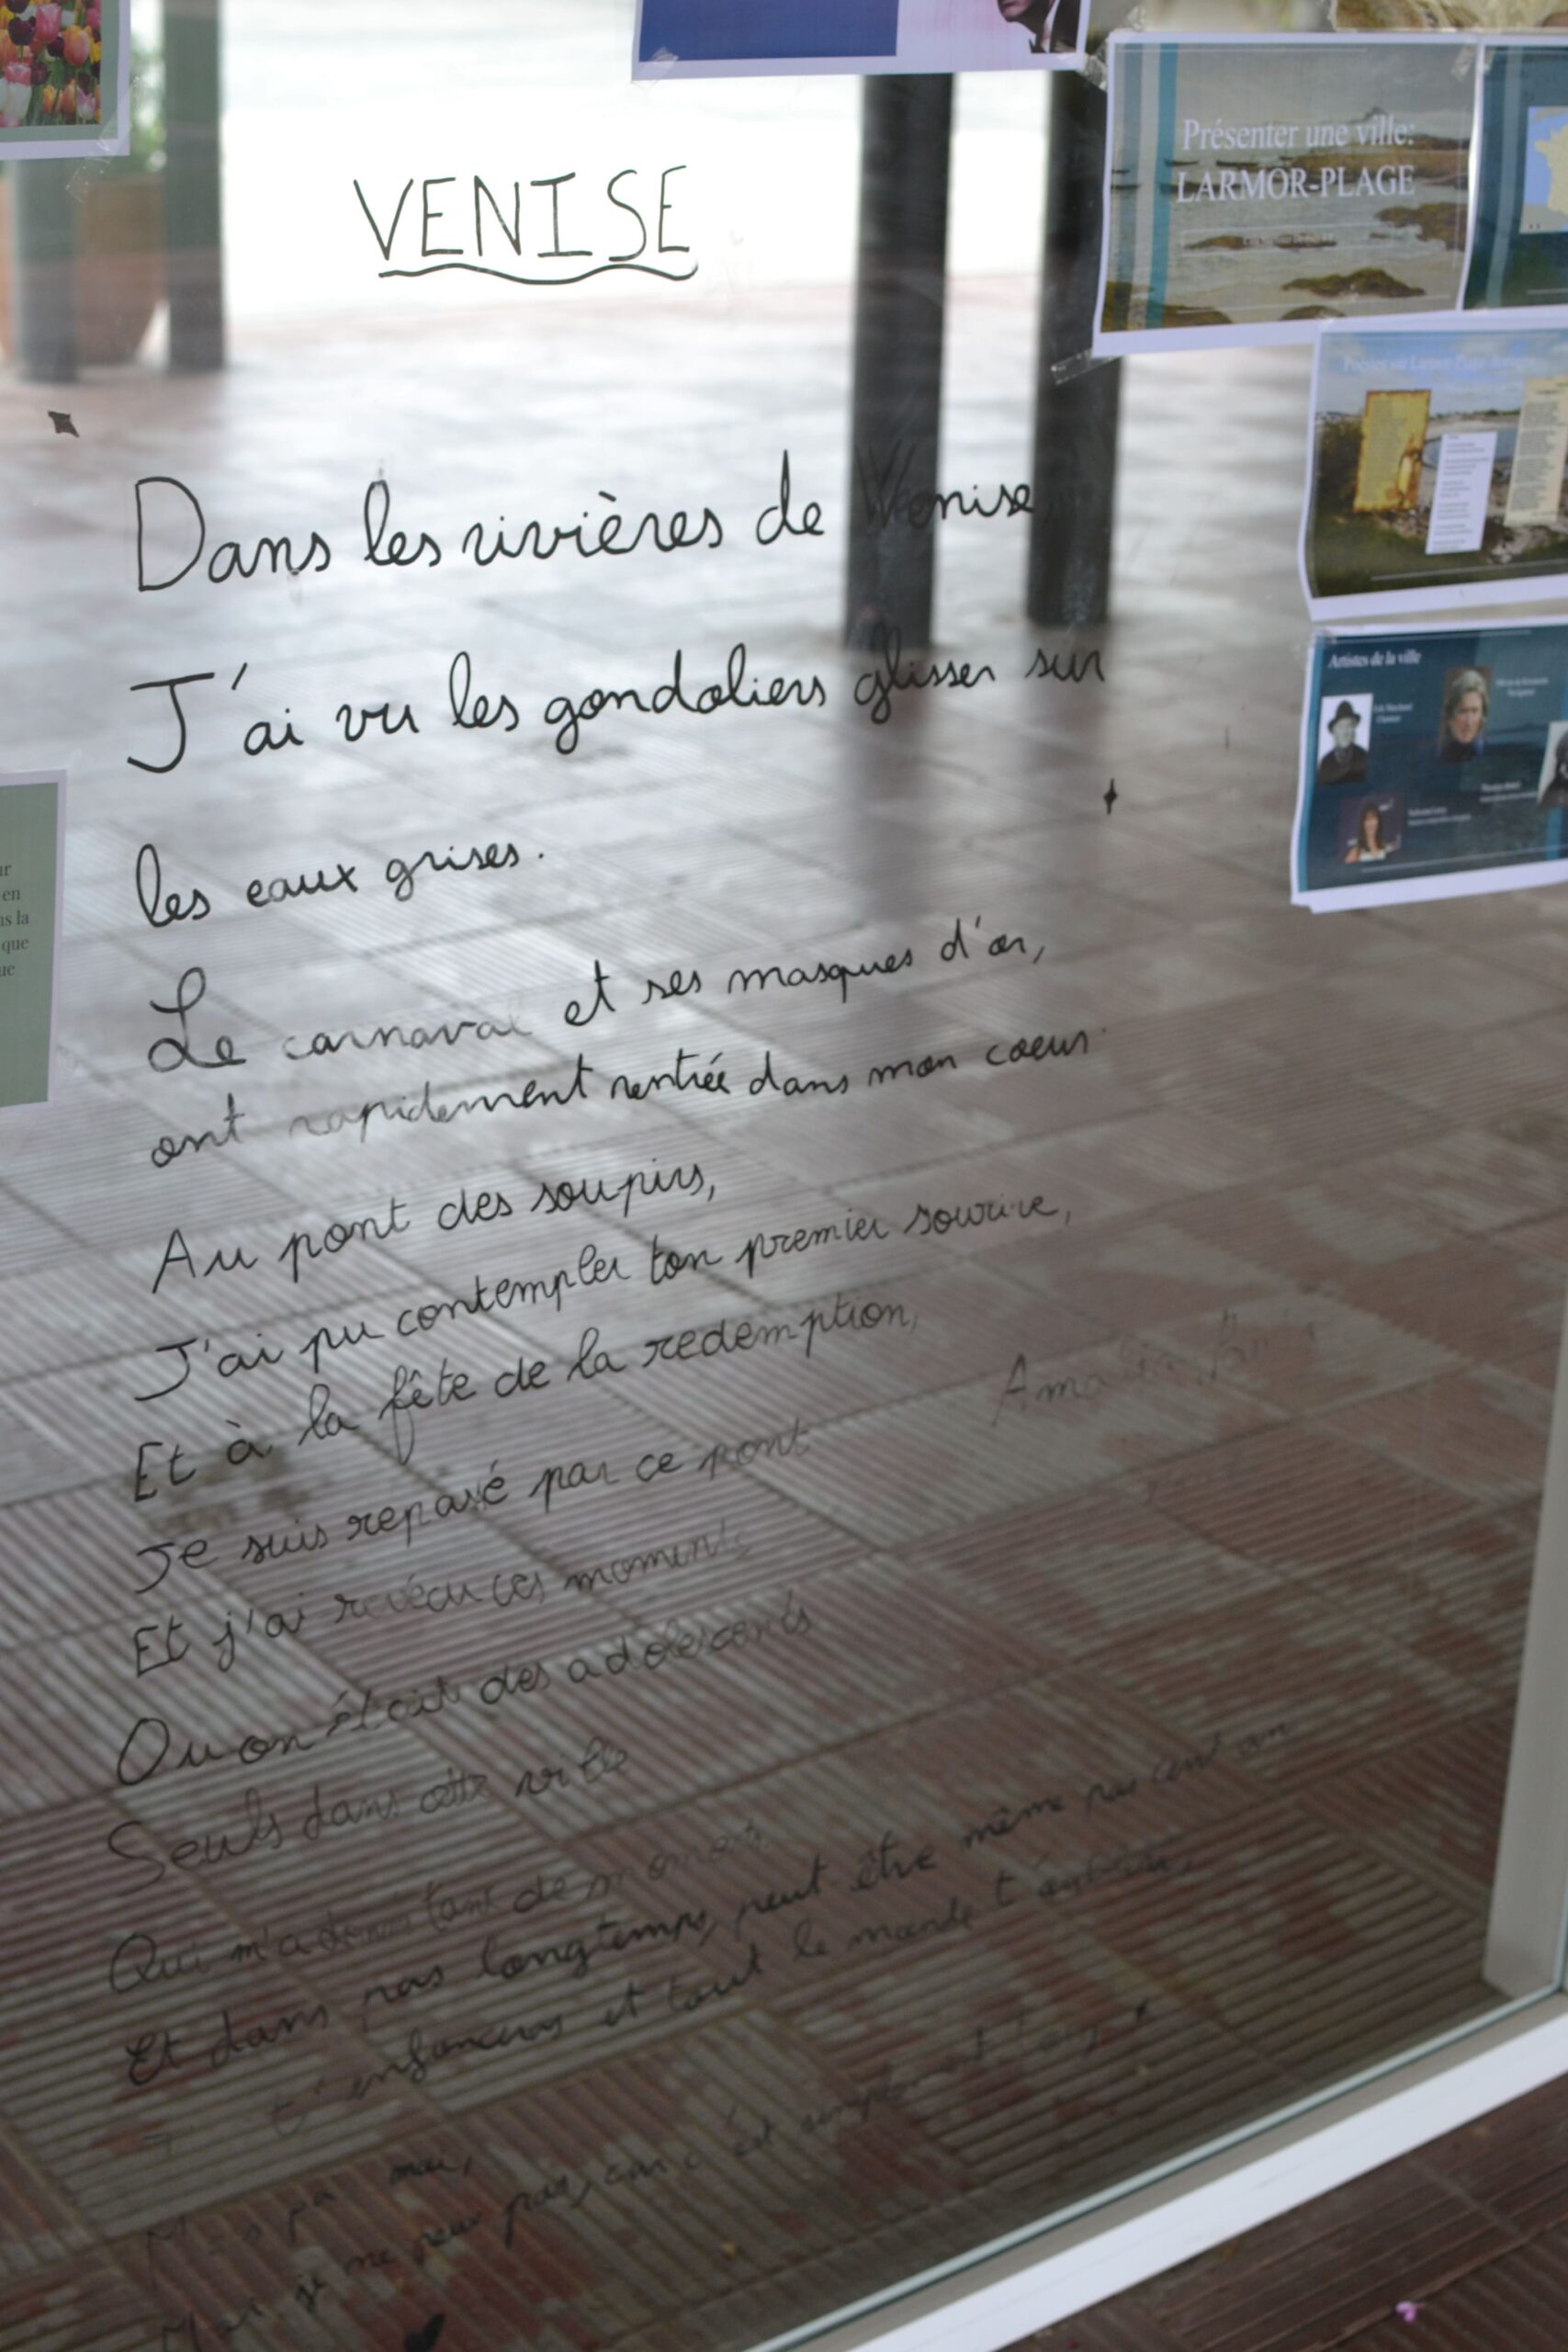 VENISE
Dans les rivières de Venise,
J'ai vu les gondoliers glisser sur
les eaux grises.
Le carnaval et ses masques d'or,
ont rapidement rentrée dans mon coeur.
Au pont des soupirs,
J'ai pu contempler ton premier sourire,
Et à la fête de la redemption,
Je suis repassé par ce pont
Et j'ai revécu ces moments
Ou on était des adolescents
Seuls dans cette ville
Qui m'a tant de moments
Et dans pas longtemps, peut être même pas cent an
t'enfonceras et tout le monde t'oubliera,
pa moi,
je ne peux pas, car c'est simplement
Présenter une ville:
LARMOR-PLAGE
Poésies sur Larmor-Plage
Artistes de la ville
ur
en
ns la
que
ue